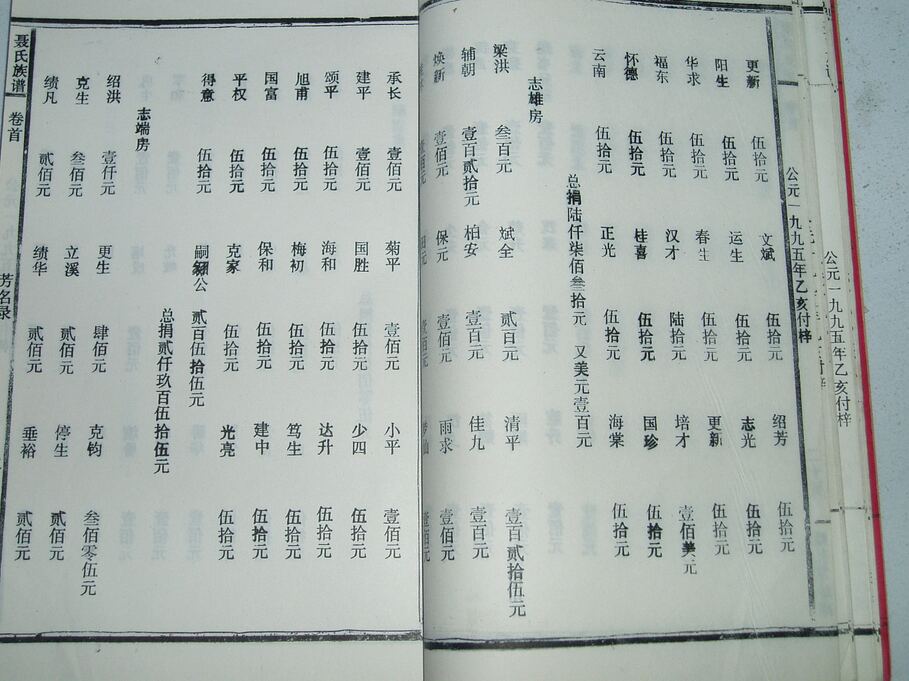 公元一九九五年乙亥付梓
公元一九九五年乙亥付梓
更新 伍拾元 文斌 伍拾元 绍芳 伍拾元
阳生 伍拾元 运生 伍拾元 志光 伍拾元
华求 伍拾元 春生 伍拾元 更新 伍拾元
福东 伍拾元 汉才 陆拾元 培才 壹佰美元
怀德 伍拾元 桂喜 伍拾元 国珍 伍拾元
云南 伍拾元 正光 伍拾元 海棠 伍拾元
总捐陆仟柒佰叁拾元 又美元壹百元
志雄房
梁洪 叁百元 斌全 贰百元 清平 壹百贰拾伍元
辅朝 壹百贰拾元 柏安 壹百元 佳九 壹百元
焕新 壹佰元 保元 壹佰元 雨求 壹佰元
承长 壹佰元 菊平 壹佰元 小平 壹佰元
建平 壹佰元 国胜 伍拾元 少四 伍拾元
颂平 伍拾元 海和 伍拾元 达升 伍拾元
旭甫 伍拾元 梅初 伍拾元 笃生 伍拾元
国富 伍拾元 保和 伍拾元 建中 伍拾元
平权 伍拾元 克家 伍拾元 光亮 伍拾元
得意 伍拾元 嗣翎公 贰百伍拾伍元
总捐贰仟玖百伍拾伍元
志端房
绍洪 壹仟元 更生 肆佰元 克钧 叁佰零伍元
克生 叁佰元 立溪 贰佰元 停生 贰佰元
绩凡 贰佰元 绩华 贰佰元 垂裕 贰佰元
聂氏族谱 卷首 芳名录